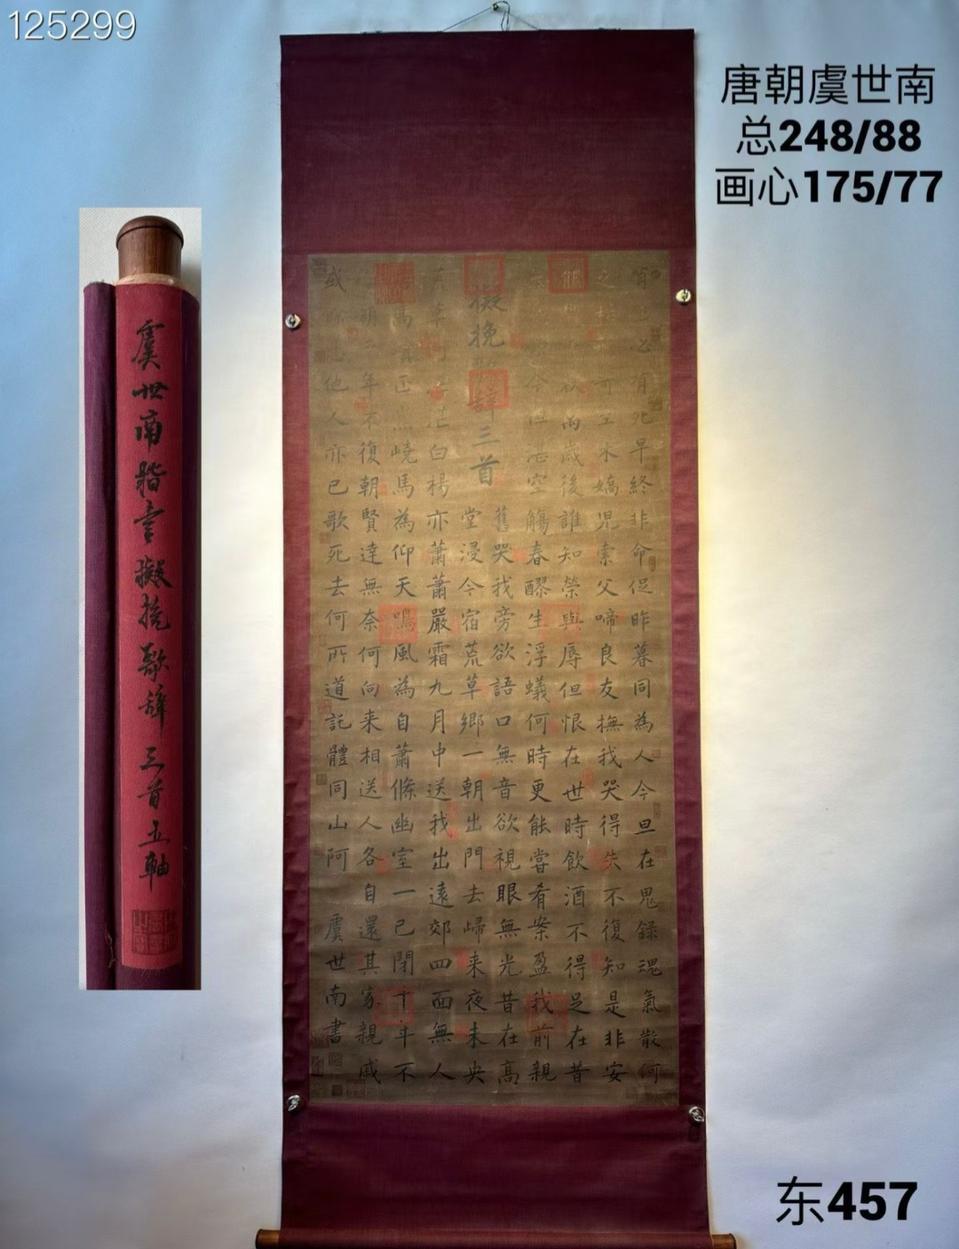 125299
唐朝虞世南
总248/88
画心175/77
虞世南楷書擬挽歌辭三首立軸
擬挽辭三首
有死早終非命促昨暮同為人今旦在鬼録魂氣散何
木嬌兒索父啼良友撫我哭得失不復知是非安
萬歲後誰知榮與辱但恨在世時飲酒不得足在昔
今但湛空觴春醪生浮蟻何時更能嘗肴案盈我前親
舊哭我旁欲語口無音欲視眼無光昔在高
堂寑今宿荒草鄉一朝出門去歸来夜未央
茫白楊亦蕭蕭嚴霜九月中送我出遠郊四面無人
嶢馬為仰天鳴風為自蕭條幽室一已閉千年不
年不復朝賢達無奈何向来相送人各自還其家親戚
他人亦已歌死去何所道託體同山阿
虞世南書
东457